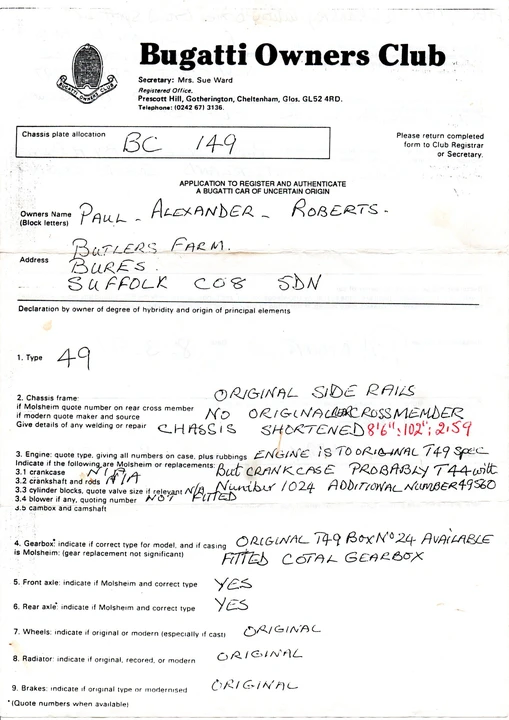 Bugatti Owners Club
BUGATTI OWNERS CLUB
Secretary: Mrs. Sue Ward
Registered Office,
Prescott Hill, Gotherington, Cheltenham, Glos. GL52 4RD.
Telephone: (0242 67) 3136.
Chassis plate allocation BC 149
Please return completed
form to Club Registrar
or Secretary.
APPLICATION TO REGISTER AND AUTHENTICATE
A BUGATTI CAR OF UNCERTAIN ORIGIN
Owners Name PAUL - ALEXANDER - ROBERTS.
(Block letters)
BUTLERS FARM.
Address BURES.
SUFFOLK CO8 5DN
Declaration by owner of degree of hybridity and origin of principal elements
1. Type 49
2. Chassis frame: ORIGINAL SIDE RAILS
if Molsheim quote number on rear cross member
if modern quote maker and source NO ORIGINAL REAR CROSSMEMBER
Give details of any welding or repair CHASSIS SHORTENED 8'6" : 102" : 2.59
3. Engine: quote type, giving all numbers on case, plus rubbings ENGINE IS TO ORIGINAL T49 Spec
Indicate if the following are Molsheim or replacements: But CRANKCASE PROBABLY T44 with
3.1 crankcase N/A
3.2 crankshaft and rods N/A
3.3 cylinder blocks, quote valve size if relevant N/A Number 1024 ADDITIONAL NUMBER 49560
3.4 blower if any, quoting number NOT FITTED
3.5 cambox and camshaft
4. Gearbox: indicate if correct type for model, and if casing ORIGINAL T49 BOX No 24 AVAILABLE
is Molsheim: (gear replacement not significant) FITTED COTAL GEARBOX
5. Front axle: indicate if Molsheim and correct type YES
6. Rear axle* indicate if Molsheim and correct type YES
7. Wheels: indicate if original or modern (especially if cast) ORIGINAL
8. Radiator: indicate if original, recored, or modern ORIGINAL
9. Brakes: indicate if original type or modernised ORIGINAL
*(Quote numbers when available)